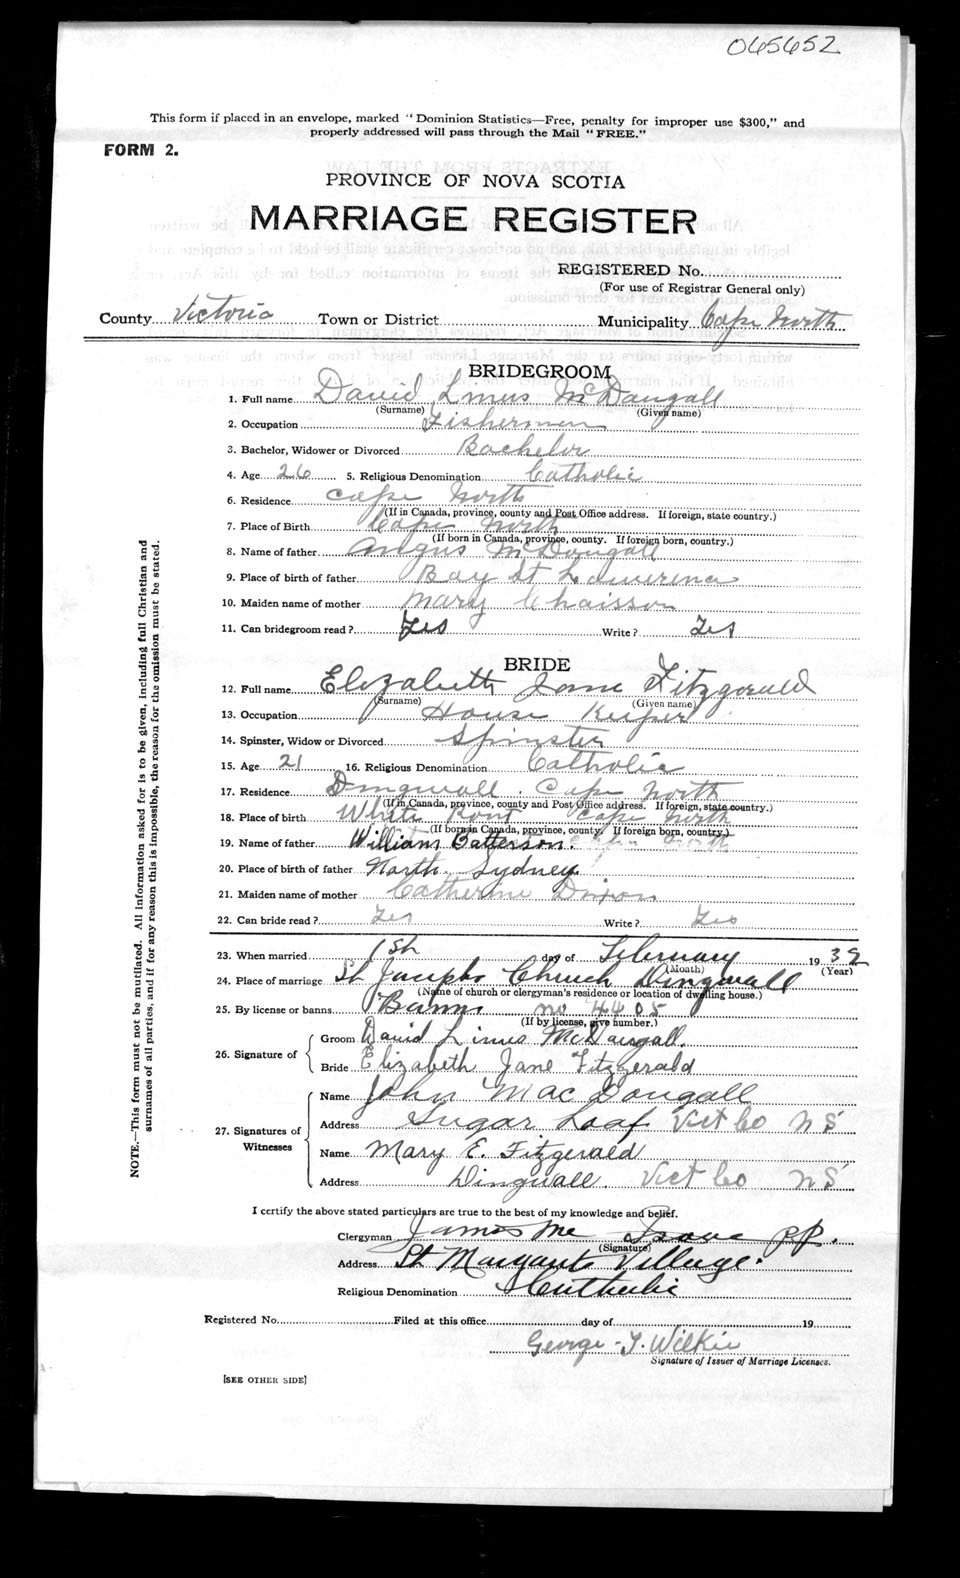 065652
This form if placed in an envelope, marked "Dominion Statistics—Free, penalty for improper use $300," and
properly addressed will pass through the Mail "FREE."
FORM 2.
PROVINCE OF NOVA SCOTIA
MARRIAGE REGISTER
REGISTERED No.
(For use of Registrar General only)
County Victoria Town or District Municipality Cape North
BRIDEGROOM
1. Full name David Linus McDougall
(Surname) (Given name)
2. Occupation Fisherman
3. Bachelor, Widower or Divorced Bachelor
4. Age 26 5. Religious Denomination Catholic
6. Residence Cape North
(If in Canada, province, county and Post Office address. If foreign, state country.)
7. Place of Birth Cape North
(If born in Canada, province, county. If foreign born, country.)
8. Name of father Angus McDougall
9. Place of birth of father Bay St Lawrence
10. Maiden name of mother Mary Chaisson
11. Can bridegroom read? Yes Write? Yes
BRIDE
12. Full name Elizabeth Jane Fitzgerald
(Surname) (Given name)
13. Occupation House Keeper
14. Spinster, Widow or Divorced Spinster
15. Age 21 16. Religious Denomination Catholic
17. Residence Dingwall. Cape North
(If in Canada, province, county and Post Office address. If foreign, state country.)
18. Place of birth White Point Cape North
(If born in Canada, province, county. If foreign born, country.)
19. Name of father William Batterson.
20. Place of birth of father North Sydney.
21. Maiden name of mother Catherine Dixon
22. Can bride read? Yes Write? Yes
23. When married 1st day of February 1932
(Month) (Year)
24. Place of marriage St Josephs Church Dingwall
(Name of church or clergyman's residence or location of dwelling house.)
25. By license or banns Banns no 4405
(If by license, give number.)
26. Signature of Groom David Linus McDougall.
Bride Elizabeth Jane Fitzgerald
27. Signatures of Witnesses Name John MacDougall
Address Sugar Loaf Vict Co NS
Name Mary E. Fitzgerald
Address Dingwall. Vict Co NS
I certify the above stated particulars are true to the best of my knowledge and belief.
Clergyman James Mc P.P.
(Signature)
Address St Margarets Village.
Religious Denomination Catholic
Registered No. Filed at this office day of 19
George T. Wilkie
Signature of Issuer of Marriage Licenses.
[SEE OTHER SIDE]
NOTE.—This form must not be mutilated. All information asked for is to be given, including full Christian and
surnames of all parties, and if for any reason this is impossible, the reason for the omission must be stated.